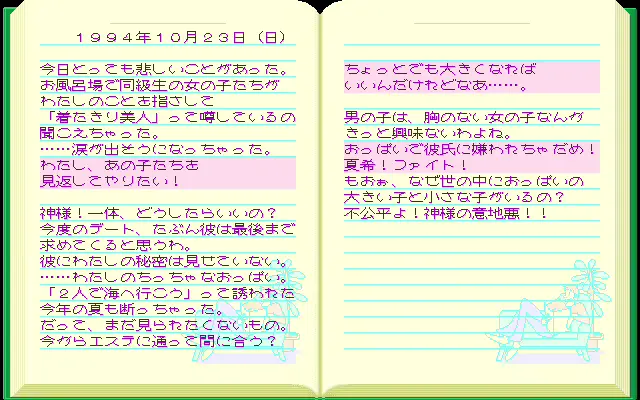 １９９４年１０月２３日（日）
今日とっても悲しいことがあった。
お風呂場で同級生の女の子たちが
わたしのことを指さして
「着たきり美人」って噂しているの
聞こえちゃった。
……涙が出そうになっちゃった。
わたし、あの子たちを
見返してやりたい！
神様！一体、どうしたらいいの？
今度のデート、たぶん彼は最後まで
求めてくると思うわ。
彼にわたしの秘密は見せていない。
……わたしのちっちゃなおっぱい。
「２人で海へ行こう」って誘われた
今年の夏も断っちゃった。
だって、まだ見られたくないもの。
今からエステに通って間に合う？
ちょっとでも大きくなれば
いいんだけれどなあ……。
男の子は、胸のない女の子なんか
きっと興味ないわよね。
おっぱいで彼氏に嫌われちゃだめ！
夏希！ファイト！
もおぉ、なぜ世の中におっぱいの
大きい子と小さな子がいるの？
不公平よ！神様の意地悪！！